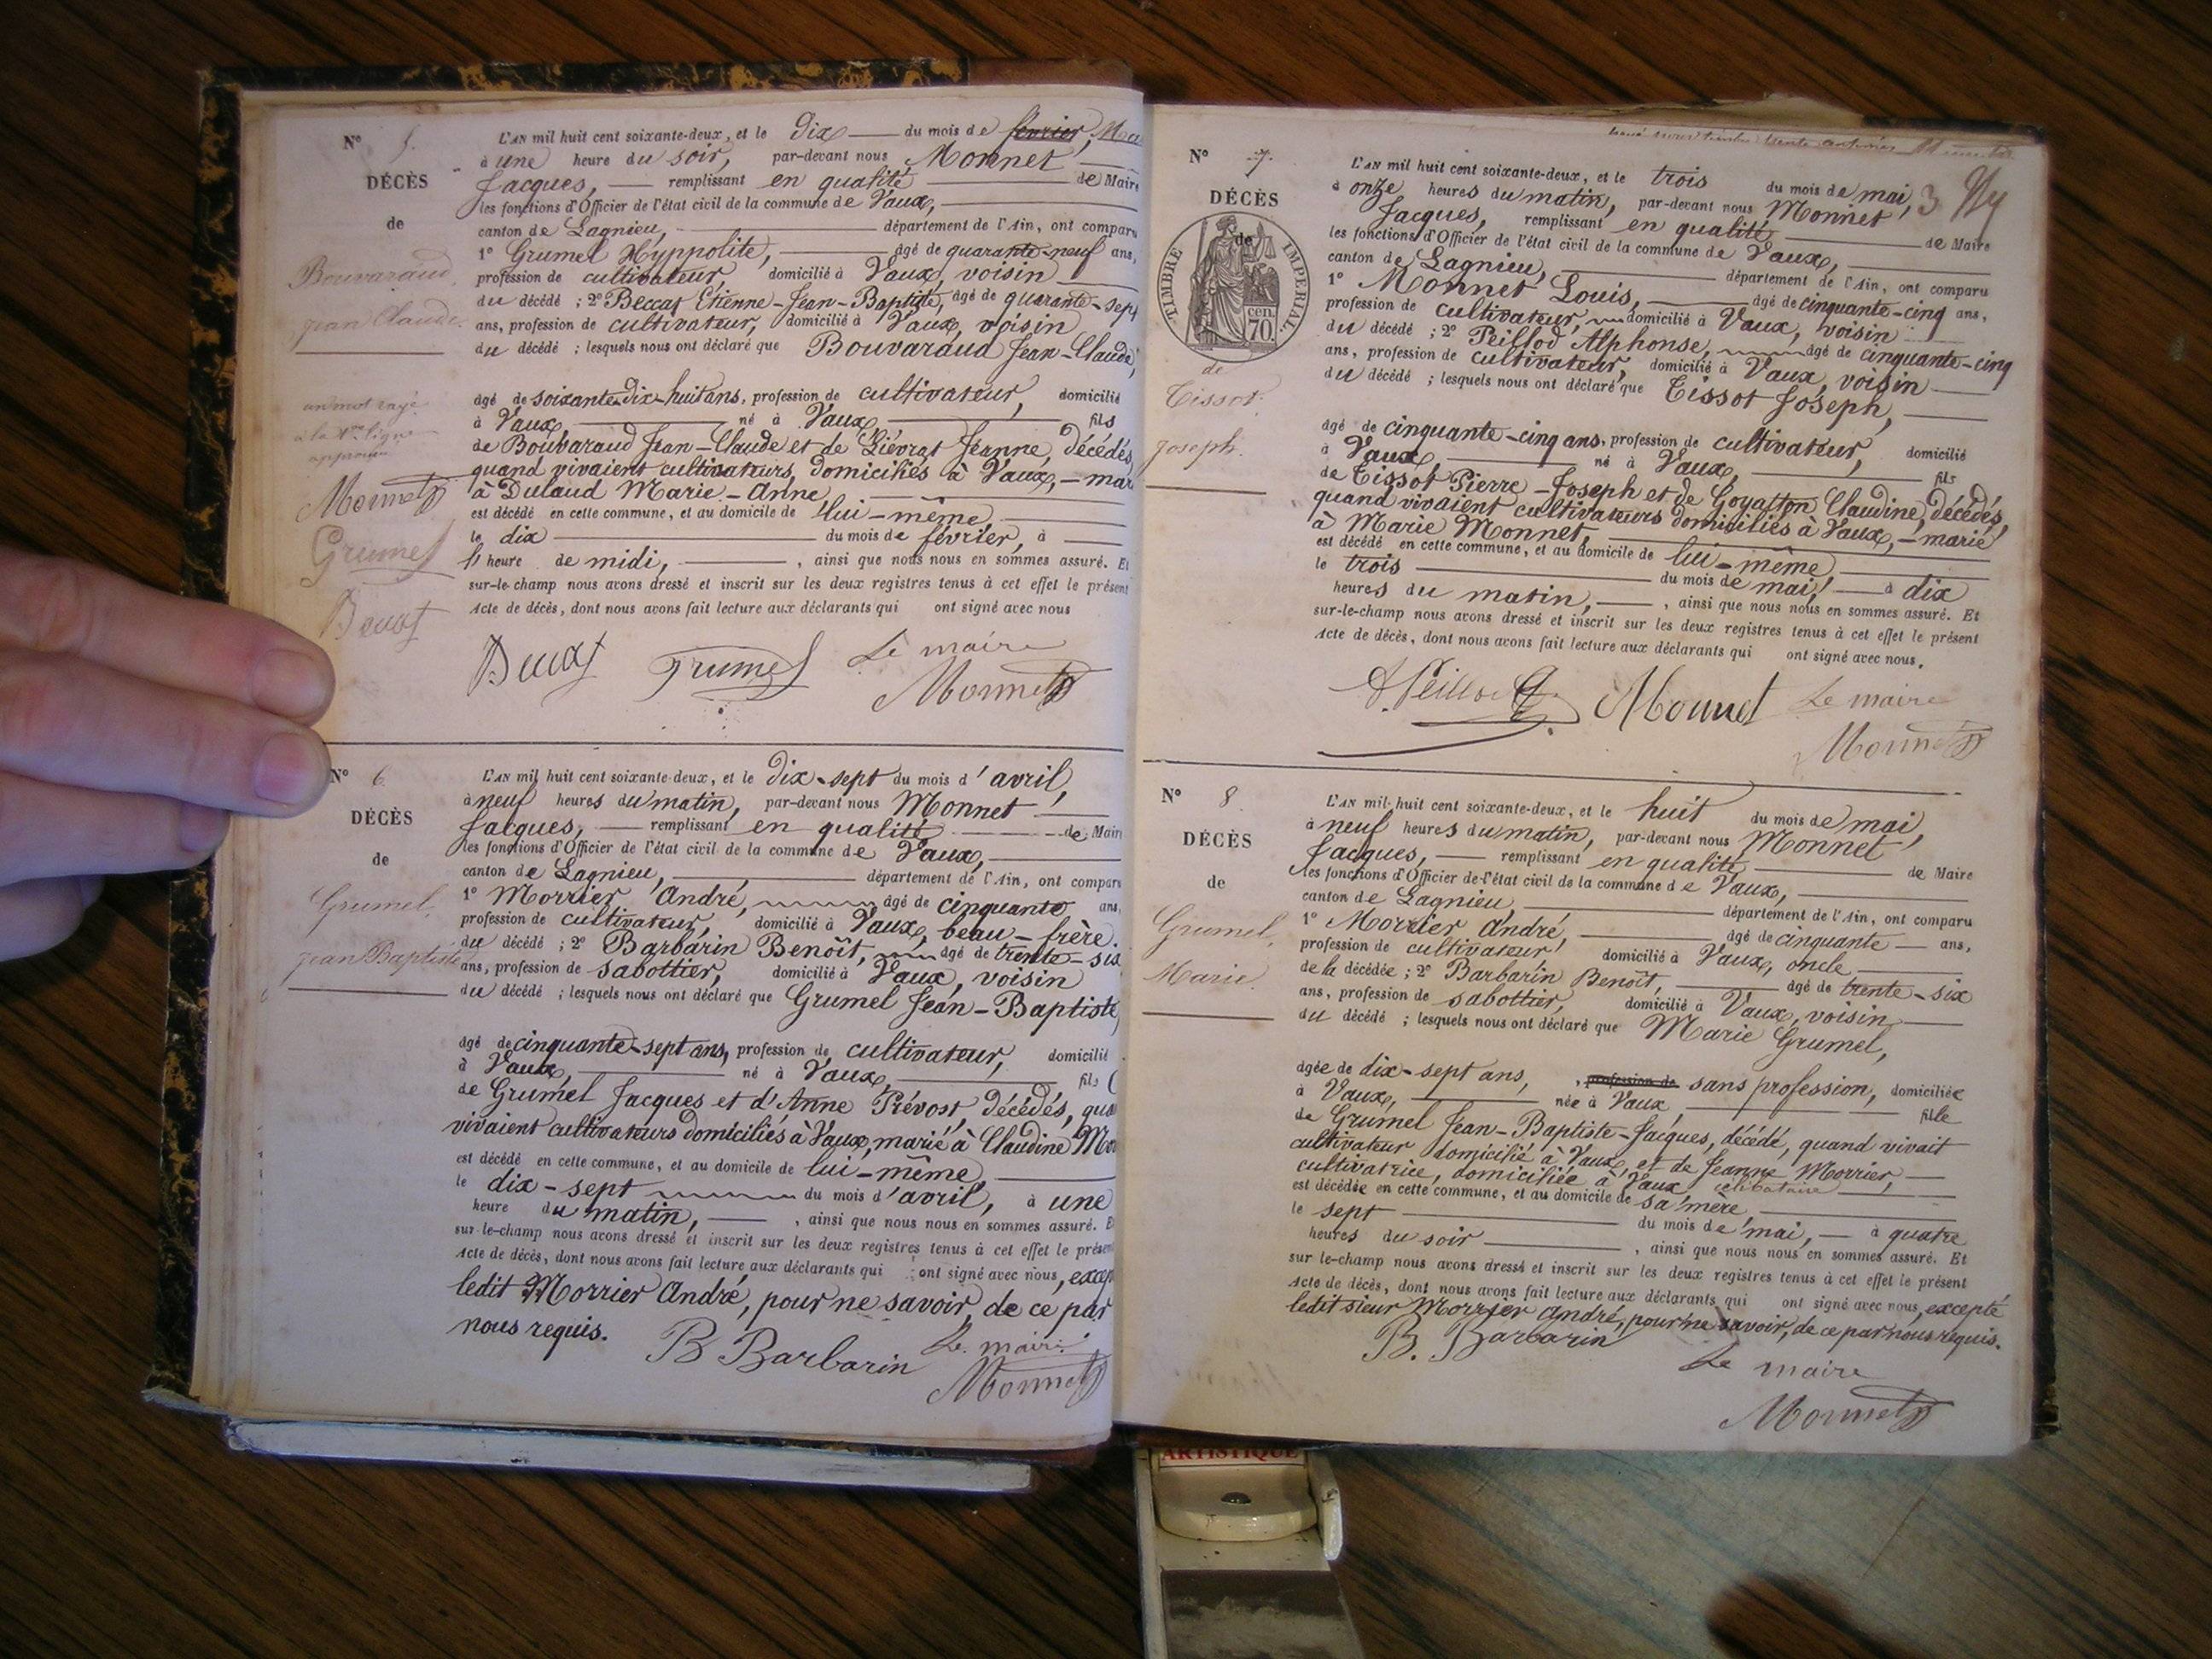 N° 5.
DÉCÈS
de
Bouvaraud
Jean Claude.
un mot rayé
à la 1re ligne
approuvé
Monnet
Grumel
Beccat
L'AN mil huit cent soixante-deux, et le dix du mois de février, Ma
à une heure du soir, par-devant nous Monnet
Jacques, remplissant en qualité de Maire
les fonctions d'Officier de l'état civil de la commune de Vaux,
canton de Lagnieu, département de l'Ain, ont comparu
1° Grumel Hyppolite, âgé de quarante-neuf ans,
profession de cultivateur, domicilié à Vaux, voisin
du décédé ; 2° Beccat Etienne-Jean-Baptiste, âgé de quarante-sept
ans, profession de cultivateur, domicilié à Vaux, voisin
du décédé ; lesquels nous ont déclaré que Bouvaraud Jean-Claude,
âgé de soixante-dix-huit ans, profession de cultivateur, domicilié
à Vaux, né à Vaux, fils
de Bouvaraud Jean-Claude et de Liévrat Jeanne, décédés,
quand vivaient cultivateurs, domiciliés à Vaux, - mar
à Dulaud Marie-Anne,
est décédé en cette commune, et au domicile de lui-même
le dix du mois de février, à
heure de midi, , ainsi que nous nous en sommes assuré. Et
sur-le-champ nous avons dressé et inscrit sur les deux registres tenus à cet effet le présent
Acte de décès, dont nous avons fait lecture aux déclarants qui ont signé avec nous
Beccat Grumel Le maire
Monnet
N° 6.
DÉCÈS
de
Grumel,
Jean Baptiste
L'AN mil huit cent soixante-deux, et le dix-sept du mois d'avril,
à neuf heures du matin, par-devant nous Monnet
Jacques, remplissant en qualité de Maire
les fonctions d'Officier de l'état civil de la commune de Vaux,
canton de Lagnieu, département de l'Ain, ont comparu
1° Morrier André, âgé de cinquante ans,
profession de cultivateur, domicilié à Vaux, beau-frère
du décédé ; 2° Barbarin Benoît, âgé de trente-six
ans, profession de sabottier, domicilié à Vaux, voisin
du décédé ; lesquels nous ont déclaré que Grumel Jean-Baptiste,
âgé de cinquante-sept ans, profession de cultivateur, domicilié
à Vaux, né à Vaux, fils
de Grumel Jacques et d'Anne Prévost décédés, qua
vivaient cultivateurs domiciliés à Vaux, marié à Claudine Mo
est décédé en cette commune, et au domicile de lui-même,
le dix-sept du mois d'avril, à une
heure du matin, , ainsi que nous nous en sommes assuré. E
sur-le-champ nous avons dressé et inscrit sur les deux registres tenus à cet effet le présen
Acte de décès, dont nous avons fait lecture aux déclarants qui ont signé avec nous, excep
ledit Morrier André, pour ne savoir, de ce par
nous requis.
B Barbarin Le maire
Monnet
N° 7.
DÉCÈS
de
TIMBRE IMPERIAL.
cen. 70.
de
Tissot.
Joseph.
L'AN mil huit cent soixante-deux, et le trois du mois de mai,
à onze heures du matin, par-devant nous Monnet
Jacques, remplissant en qualité de Maire
les fonctions d'Officier de l'état civil de la commune de Vaux,
canton de Lagnieu, département de l'Ain, ont comparu
1° Monnet Louis, âgé de cinquante-cinq ans,
profession de cultivateur, domicilié à Vaux, voisin
du décédé ; 2° Peillod Alphonse, âgé de cinquante-cinq
ans, profession de cultivateur, domicilié à Vaux, voisin
du décédé ; lesquels nous ont déclaré que Tissot Joseph,
âgé de cinquante-cinq ans, profession de cultivateur, domicilié
à Vaux né à Vaux, fils
de Tissot Pierre-Joseph et de Goyatton Claudine, décédés,
quand vivaient cultivateurs domiciliés à Vaux, - marié
à Marie Monnet,
est décédé en cette commune, et au domicile de lui-même
le trois du mois de mai, à dix
heures du matin, , ainsi que nous nous en sommes assuré. Et
sur-le-champ nous avons dressé et inscrit sur les deux registres tenus à cet effet le présent
Acte de décès, dont nous avons fait lecture aux déclarants qui ont signé avec nous.
A. Peillod Monnet Le maire
Monnet
N° 8.
DÉCÈS
de
Grumel,
Marie.
L'AN mil-huit cent soixante-deux, et le huit du mois de mai,
à neuf heures du matin, par-devant nous Monnet
Jacques, remplissant en qualité de Maire
les fonctions d'Officier de l'état civil de la commune de Vaux,
canton de Lagnieu, département de l'Ain, ont comparu
1° Morrier André, âgé de cinquante ans,
profession de cultivateur, domicilié à Vaux, oncle
de la décédée ; 2° Barbarin Benoît, âgé de trente-six
ans, profession de sabottier, domicilié à Vaux, voisin
du décédé ; lesquels nous ont déclaré que Marie Grumel,
âgée de dix-sept ans, profession de sans profession, domiciliée
à Vaux, née à Vaux fille
de Grumel Jean-Baptiste-Jacques, décédé, quand vivait
cultivateur domicilié à Vaux, et de Jeanne Morrier,
cultivatrice, domiciliée à Vaux célibataire
est décédée en cette commune, et au domicile de sa mère,
le sept du mois de mai, à quatre
heures du soir , ainsi que nous nous en sommes assuré. Et
sur le-champ nous avons dressé et inscrit sur les deux registres tenus à cet effet le présent
Acte de décès, dont nous avons fait lecture aux déclarants qui ont signé avec nous, excepté
ledit sieur Morrier André, pour ne savoir, de ce par nous requis.
B. Barbarin
Le maire
Monnet
ARTISTIQUE